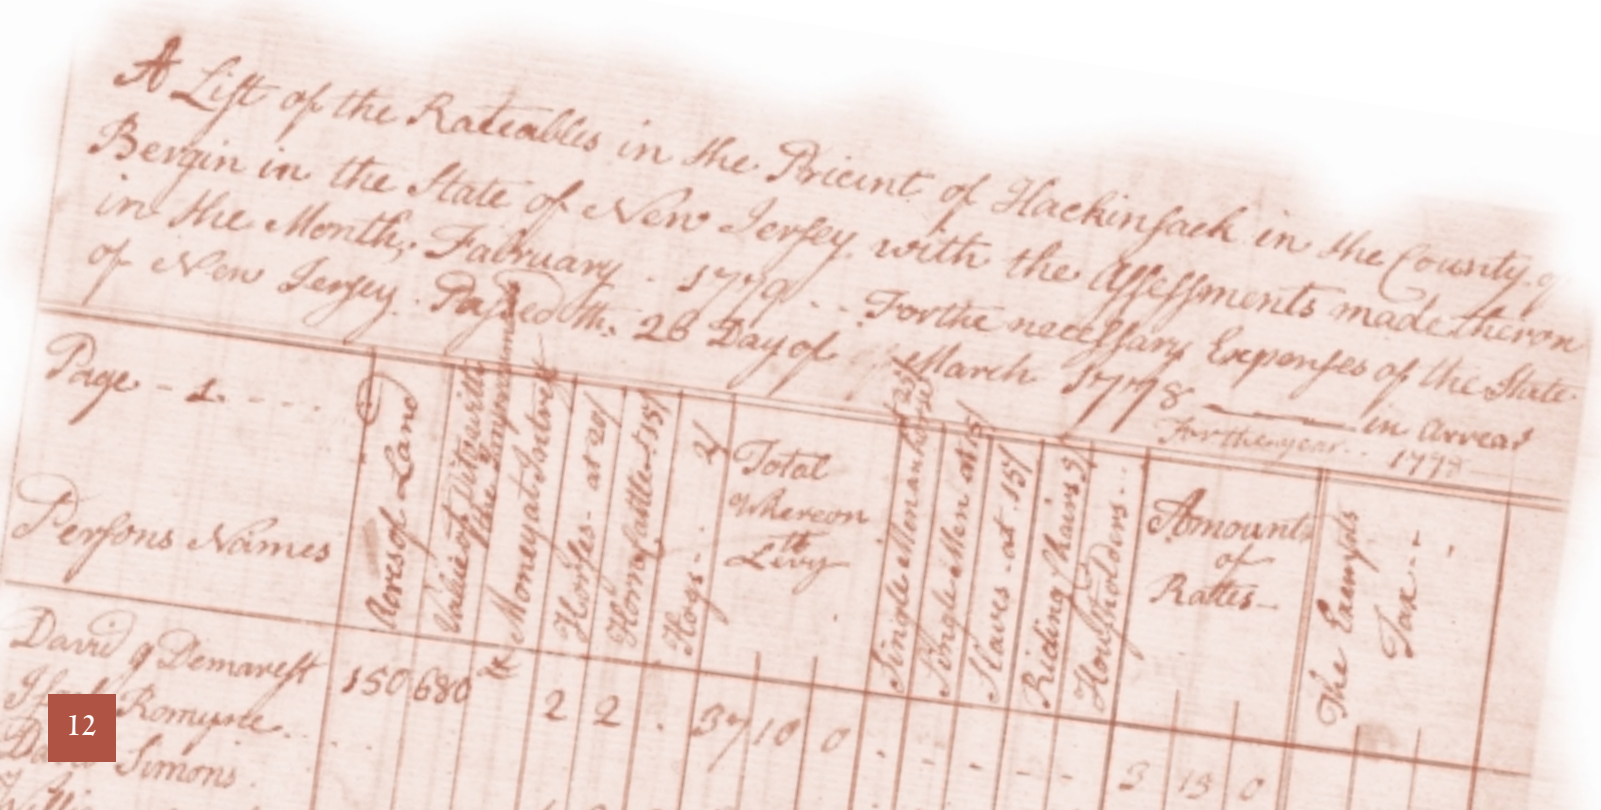 A List of the Rateables in the Pricint of Hackinsack in the County of
Bergin in the State of New Jersey with the Assessments made theron
in the Month, Fabruary . 1779 . . Forthe necessary Expenses of the State
of New Jersey. Passed th. 26 Day of March 1778 — in Arrear
For the year . . 1778
Page - 1. - - - -
Persons Names
Acres of Land
Value of
the Improvement
Money at Intrest
Horses - at 20/
Horn Cattle at 15/
Hogs - : 2/
Total
Whereon
to
Levy
Single Men
Single Men at 15/
Slaves - at 15/
Riding Chairs
Housholders - - -
Amount
of
Rattes -
The Exempts
Tax - -
David Demarest 150 680 2 2 . 37 10 0 3 13 0
Romyne . .
David Simons .
12